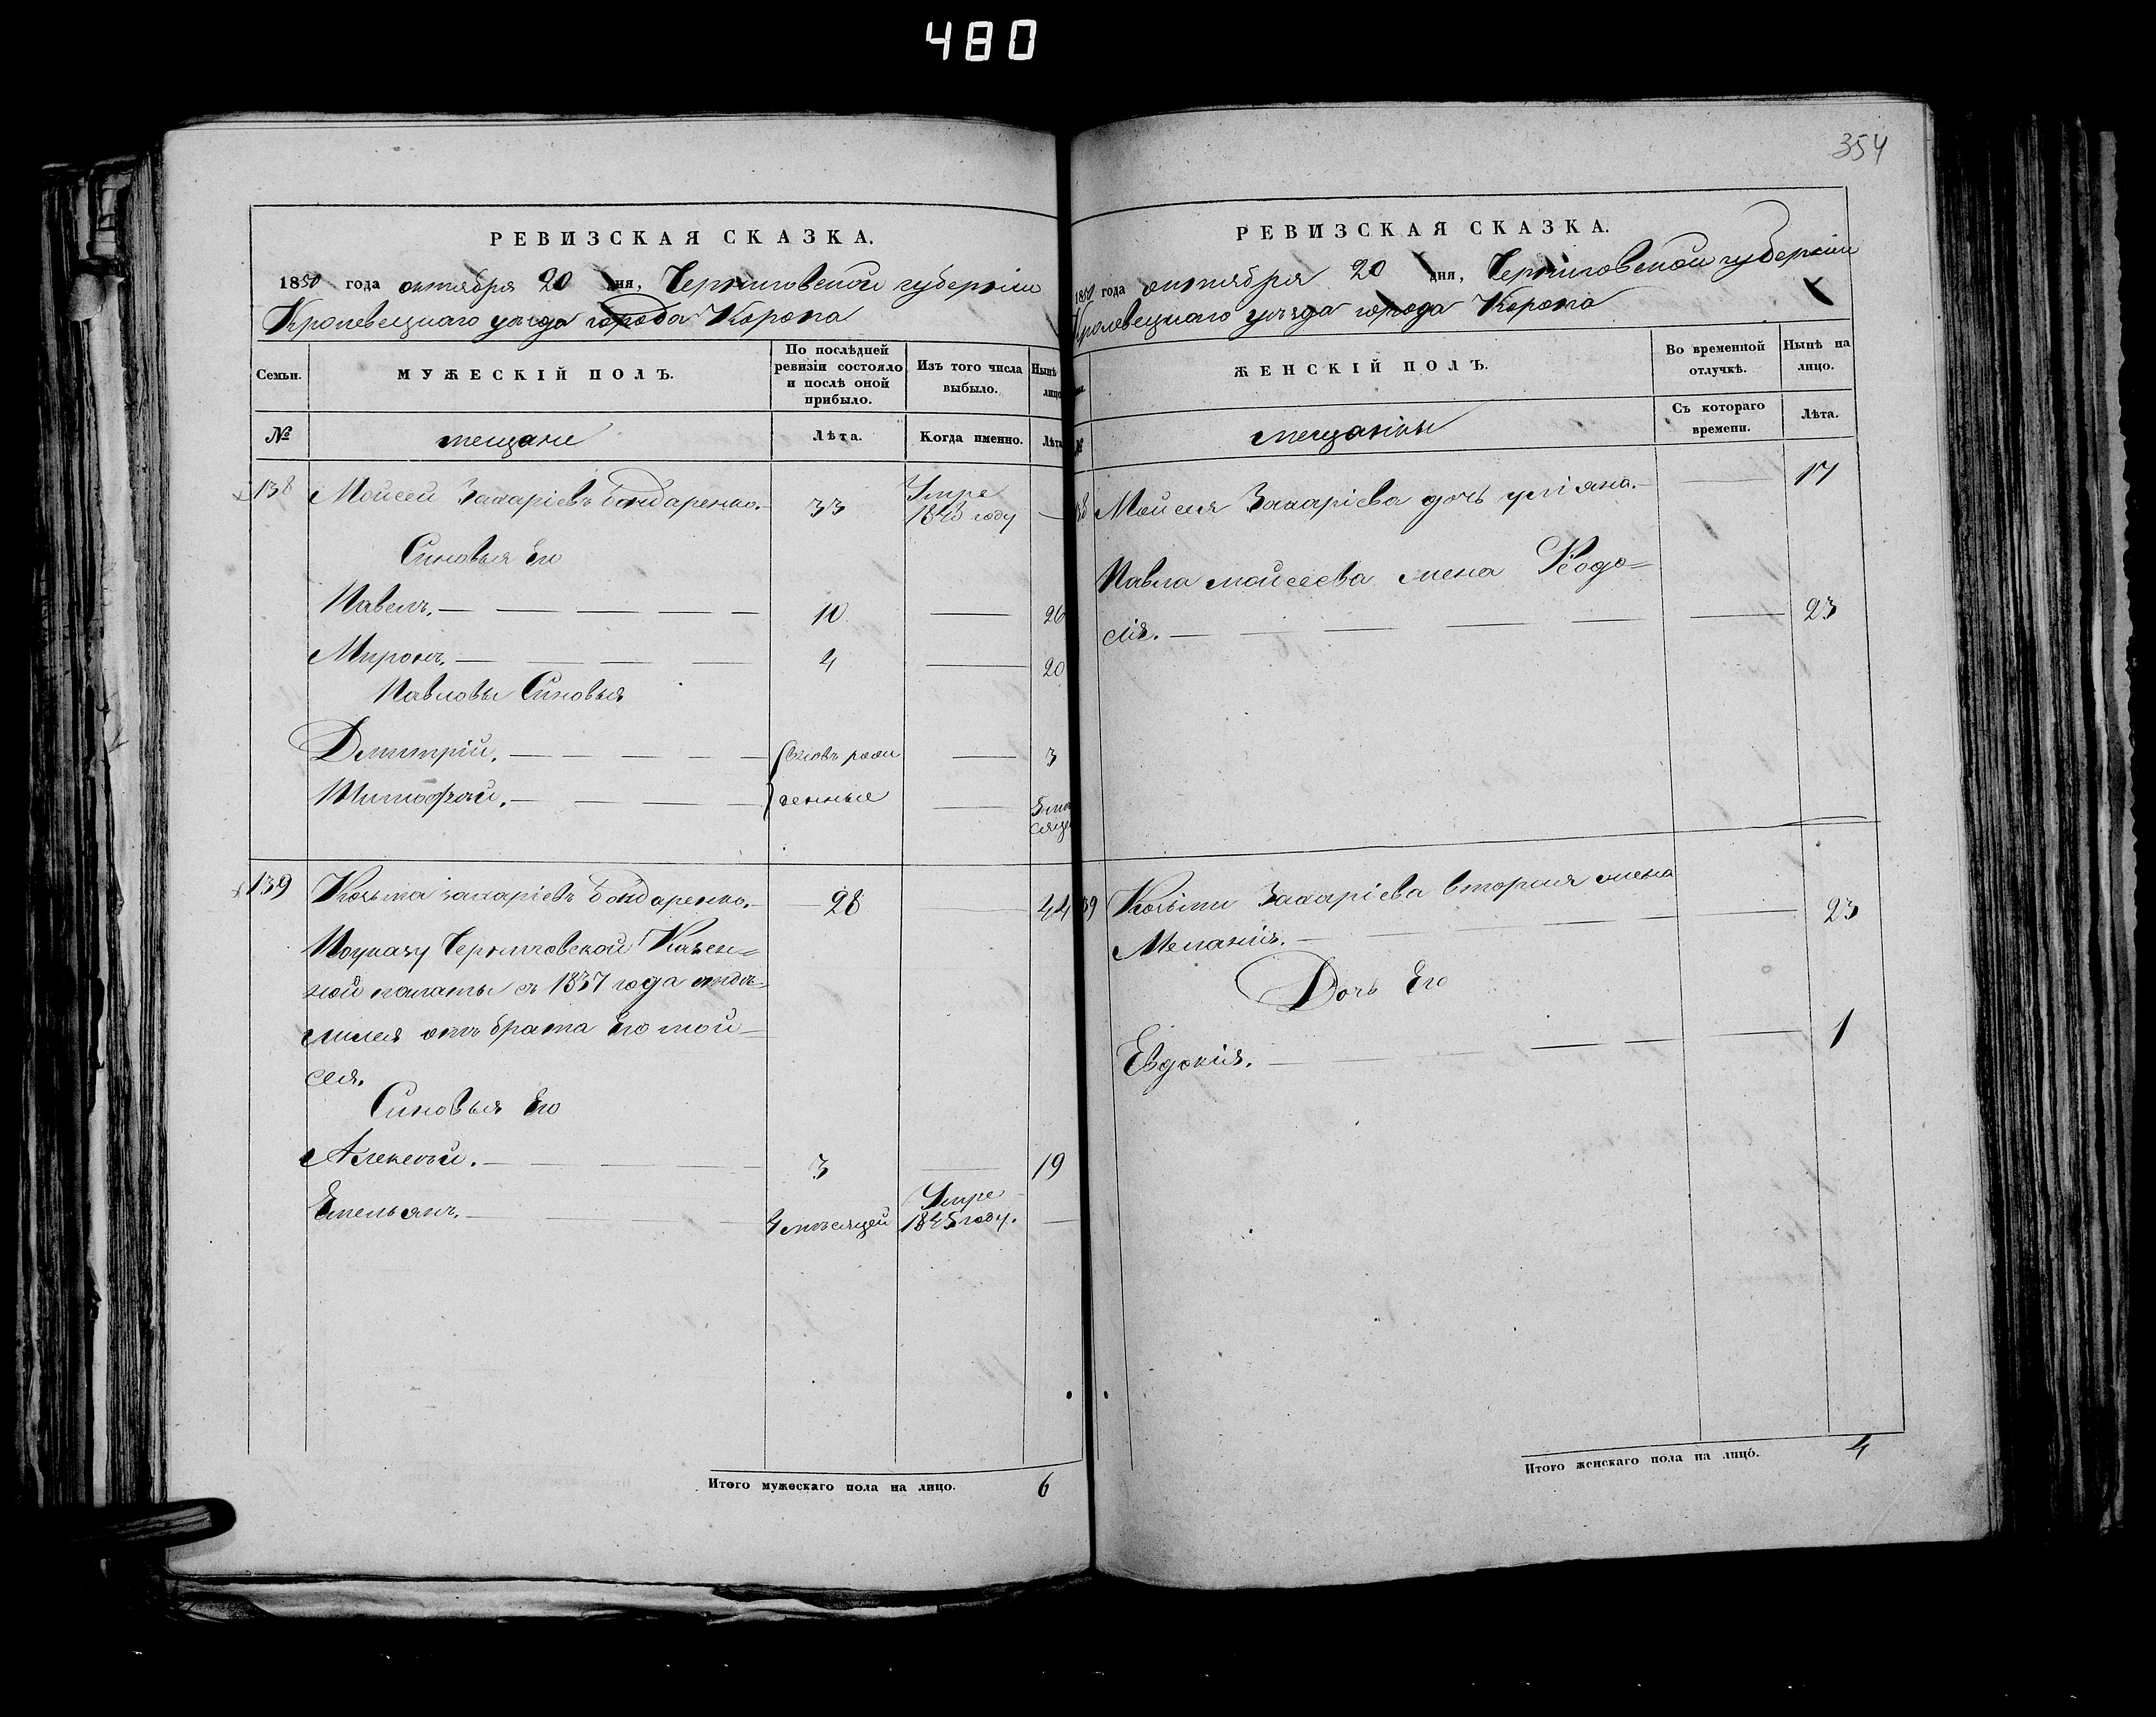 480
354
РЕВИЗСКАЯ СКАЗКА.
1850 года октября 20 дня, Черниговской губернии
Кролевецкаго уезда города Коропа
Семьи.
МУЖЕСКІЙ ПОЛЪ.
По послѣдней ревизіи состояло и послѣ оной прибыло.
Изъ того числа выбыло.
Нынѣ лицо
№
мещане
Лѣта.
Когда именно.
Лѣта
138 Мойсей Захаріевъ Бондаренко. 33 Умре
1843 году —
Синовья Его
Павелъ. — 10 — 26
Миронъ. — 4 — 20
Павловы Синовья
Дмитрій. — вновь рож — 3
Тимофѣй. — денные — 5 мѣ
сяце
139 Козьма Захаріевъ Бондаренко. 28 — 44
Поуказу Черниговской Казен=
ной палаты съ 1837 года отдѣ=
лился отъ брата Его Мой=
сея.
Синовья Его
Алексѣй. — 3 — 19
Емельянъ. — 4 мѣсяцей Умре
1845 году. —
Итого мужескаго пола на лицо. 6
РЕВИЗСКАЯ СКАЗКА.
1850 года октября 20 дня, Черниговской губерніи
Кролевецкаго уѣзда города Коропа
ЖЕНСКІЙ ПОЛЪ.
Во временной отлучкѣ.
Нынѣ на лицо.
№
мещанки
Съ котораго времени.
Лѣта.
138 Мойсея Захаріева дочь уліяна. — 17
Павла мойсеева жена Феодо=
сія. — 23
139 Козьмы Захаріева вторая жена
Меланія. — 23
Дочь Его
Евдокія. — 1
Итого женскаго пола на лицо. 4